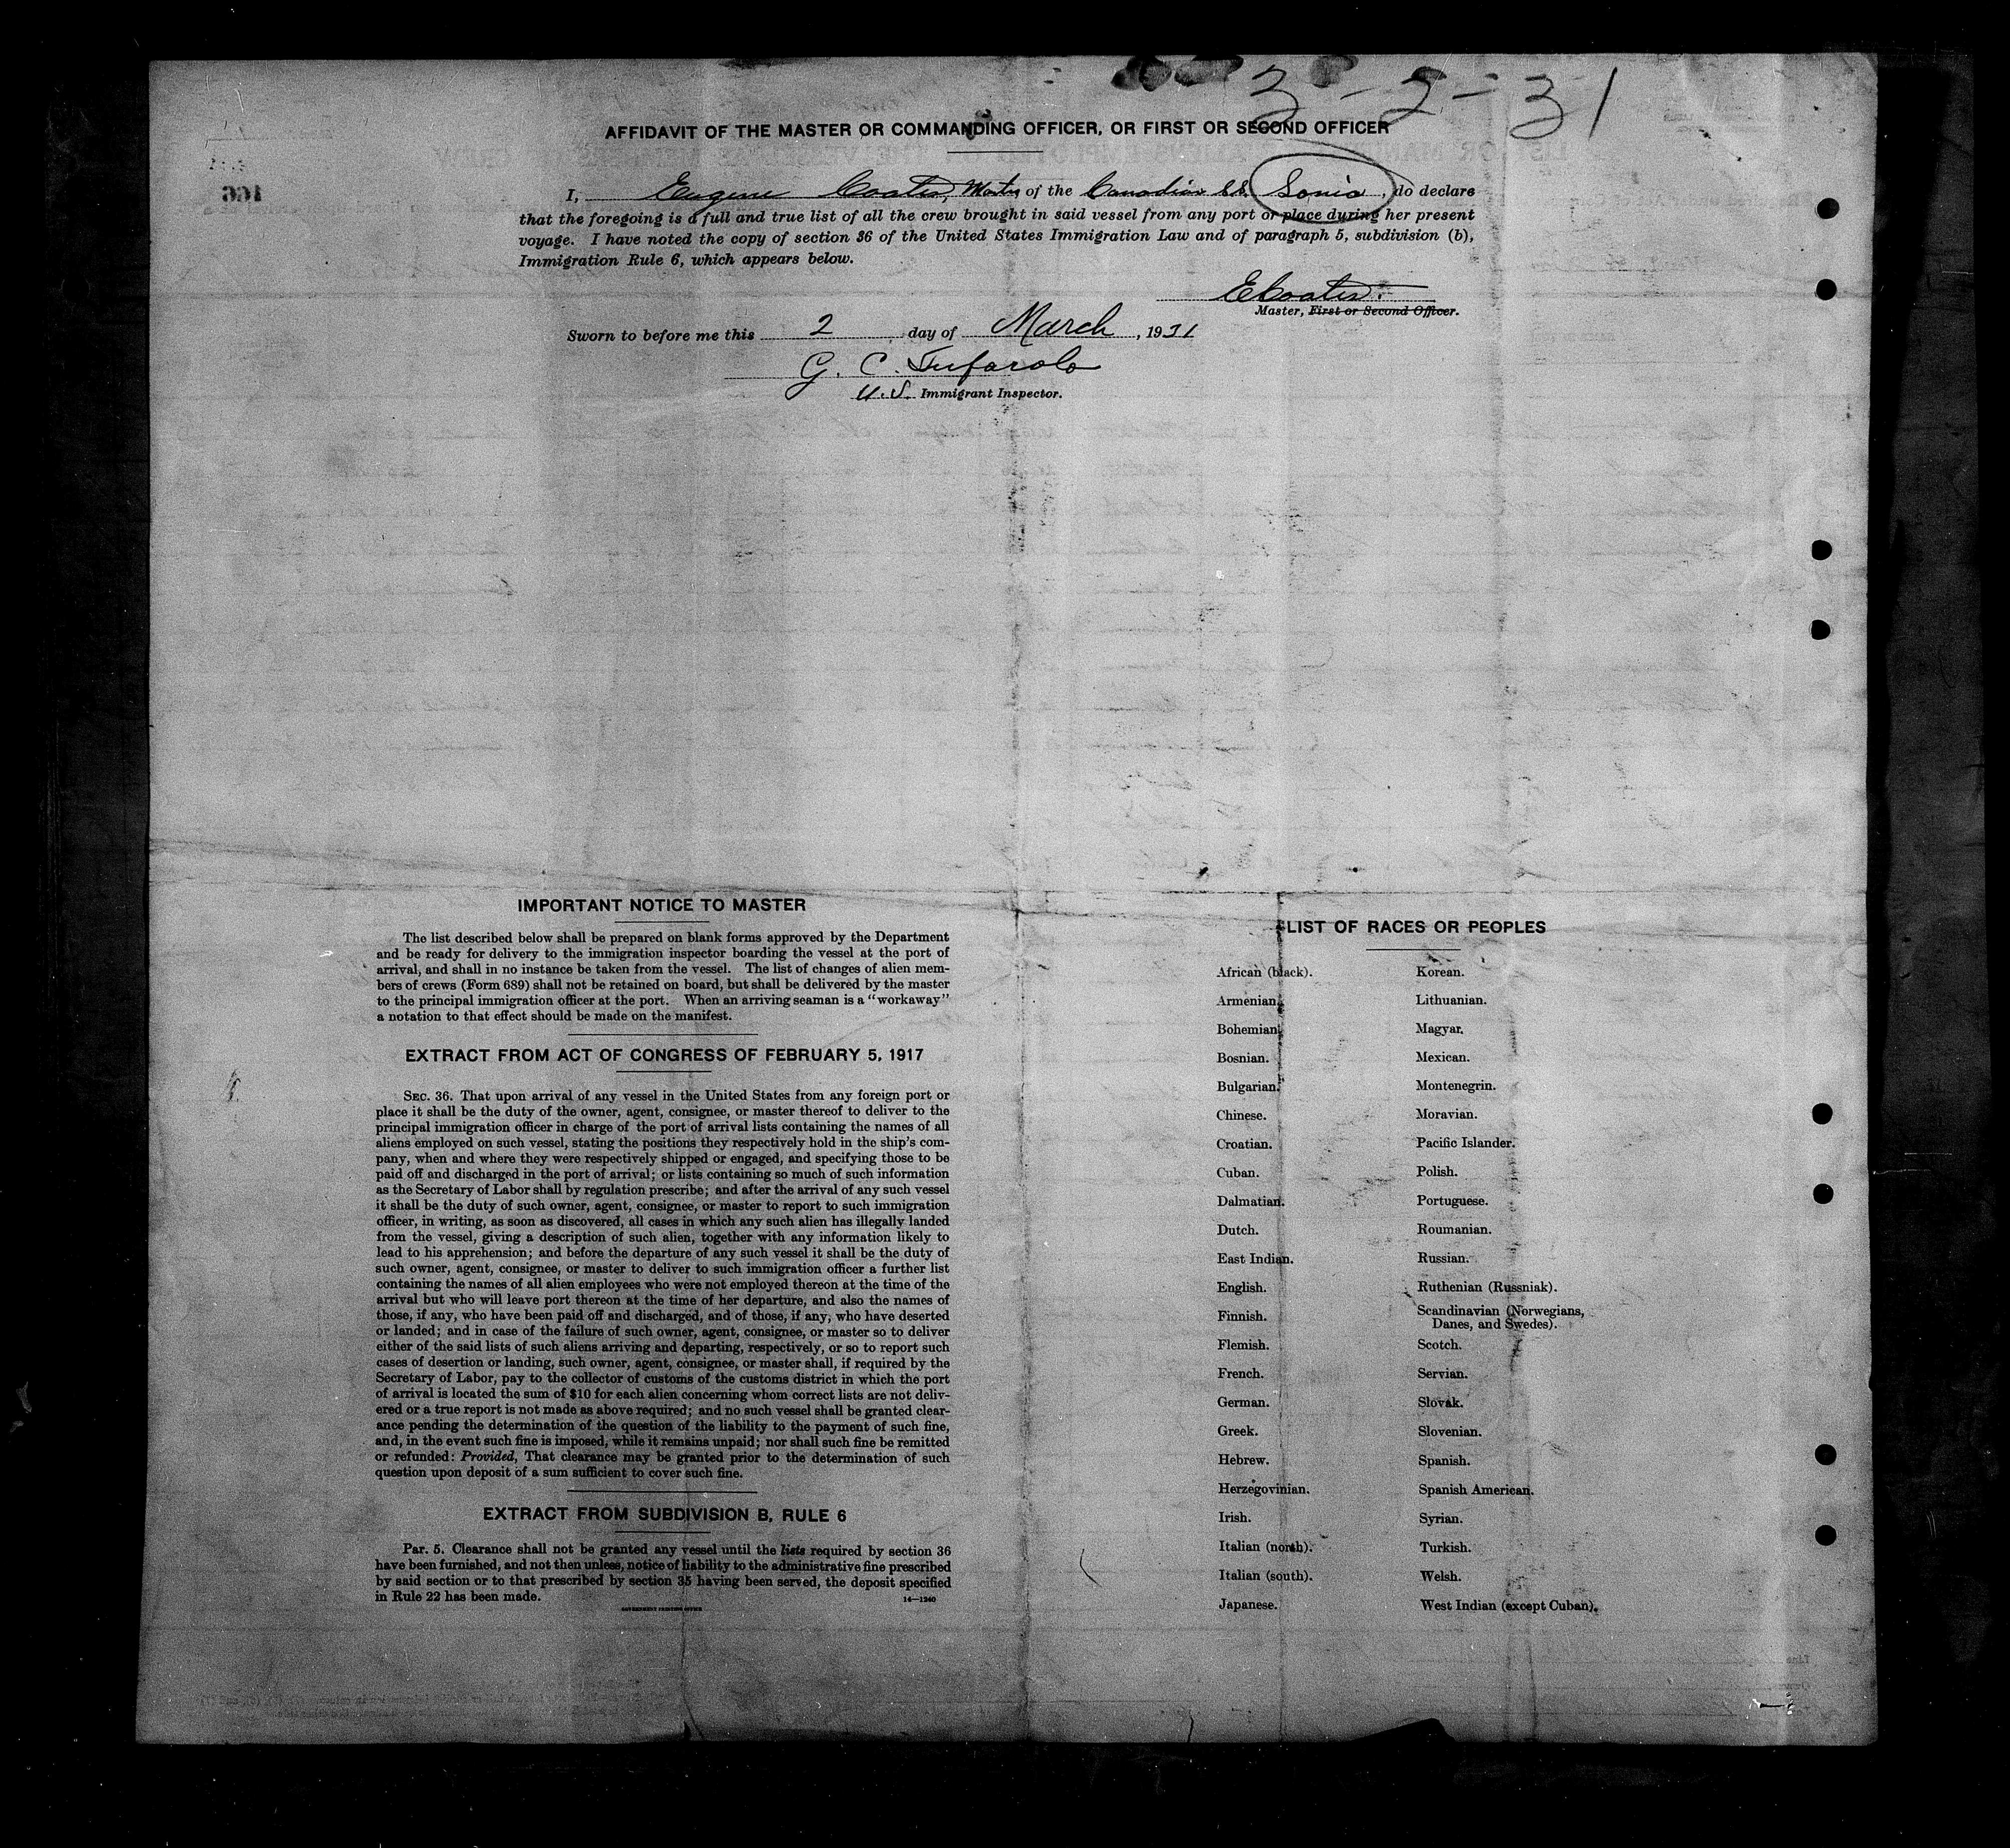 3-2-31
AFFIDAVIT OF THE MASTER OR COMMANDING OFFICER, OR FIRST OR SECOND OFFICER
I, Eugene Coates, Master, of the Canadian S.S. Sonia, do declare
that the foregoing is a full and true list of all the crew brought in said vessel from any port or place during her present
voyage. I have noted the copy of section 36 of the United States Immigration Law and of paragraph 5, subdivision (b),
Immigration Rule 6, which appears below.
E Coates.
Master, First or Second Officer.
Sworn to before me this 2 day of March, 1931
G. C. Tufarolo
U.S. Immigrant Inspector.
IMPORTANT NOTICE TO MASTER
The list described below shall be prepared on blank forms approved by the Department
and be ready for delivery to the immigration inspector boarding the vessel at the port of
arrival, and shall in no instance be taken from the vessel. The list of changes of alien mem-
bers of crews (Form 689) shall not be retained on board, but shall be delivered by the master
to the principal immigration officer at the port. When an arriving seaman is a "workaway"
a notation to that effect should be made on the manifest.
EXTRACT FROM ACT OF CONGRESS OF FEBRUARY 5, 1917
SEC. 36. That upon arrival of any vessel in the United States from any foreign port or
place it shall be the duty of the owner, agent, consignee, or master thereof to deliver to the
principal immigration officer in charge of the port of arrival lists containing the names of all
aliens employed on such vessel, stating the positions they respectively hold in the ship's com-
pany, when and where they were respectively shipped or engaged, and specifying those to be
paid off and discharged in the port of arrival; or lists containing so much of such information
as the Secretary of Labor shall by regulation prescribe; and after the arrival of any such vessel
it shall be the duty of such owner, agent, consignee, or master to report to such immigration
officer, in writing, as soon as discovered, all cases in which any such alien has illegally landed
from the vessel, giving a description of such alien, together with any information likely to
lead to his apprehension; and before the departure of any such vessel it shall be the duty of
such owner, agent, consignee, or master to deliver to such immigration officer a further list
containing the names of all alien employees who were not employed thereon at the time of the
arrival but who will leave port thereon at the time of her departure, and also the names of
those, if any, who have been paid off and discharged, and of those, if any, who have deserted
or landed; and in case of the failure of such owner, agent, consignee, or master so to deliver
either of the said lists of such aliens arriving and departing, respectively, or so to report such
cases of desertion or landing, such owner, agent, consignee, or master shall, if required by the
Secretary of Labor, pay to the collector of customs of the customs district in which the port
of arrival is located the sum of $10 for each alien concerning whom correct lists are not deliv-
ered or a true report is not made as above required; and no such vessel shall be granted clear-
ance pending the determination of the question of the liability to the payment of such fine,
and, in the event such fine is imposed, while it remains unpaid; nor shall such fine be remitted
or refunded: Provided, That clearance may be granted prior to the determination of such
question upon deposit of a sum sufficient to cover such fine.
EXTRACT FROM SUBDIVISION B, RULE 6
Par. 5. Clearance shall not be granted any vessel until the lists required by section 36
have been furnished, and not then unless, notice of liability to the administrative fine prescribed
by said section or to that prescribed by section 35 having been served, the deposit specified
in Rule 22 has been made.
14—1240
GOVERNMENT PRINTING OFFICE
LIST OF RACES OR PEOPLES
African (black).
Armenian.
Bohemian.
Bosnian.
Bulgarian.
Chinese.
Croatian.
Cuban.
Dalmatian.
Dutch.
East Indian.
English.
Finnish.
Flemish.
French.
German.
Greek.
Hebrew.
Herzegovinian.
Irish.
Italian (north).
Italian (south).
Japanese.
Korean.
Lithuanian.
Magyar.
Mexican.
Montenegrin.
Moravian.
Pacific Islander.
Polish.
Portuguese.
Roumanian.
Russian.
Ruthenian (Russniak).
Scandinavian (Norwegians,
Danes, and Swedes).
Scotch.
Servian.
Slovak.
Slovenian.
Spanish.
Spanish American.
Syrian.
Turkish.
Welsh.
West Indian (except Cuban).